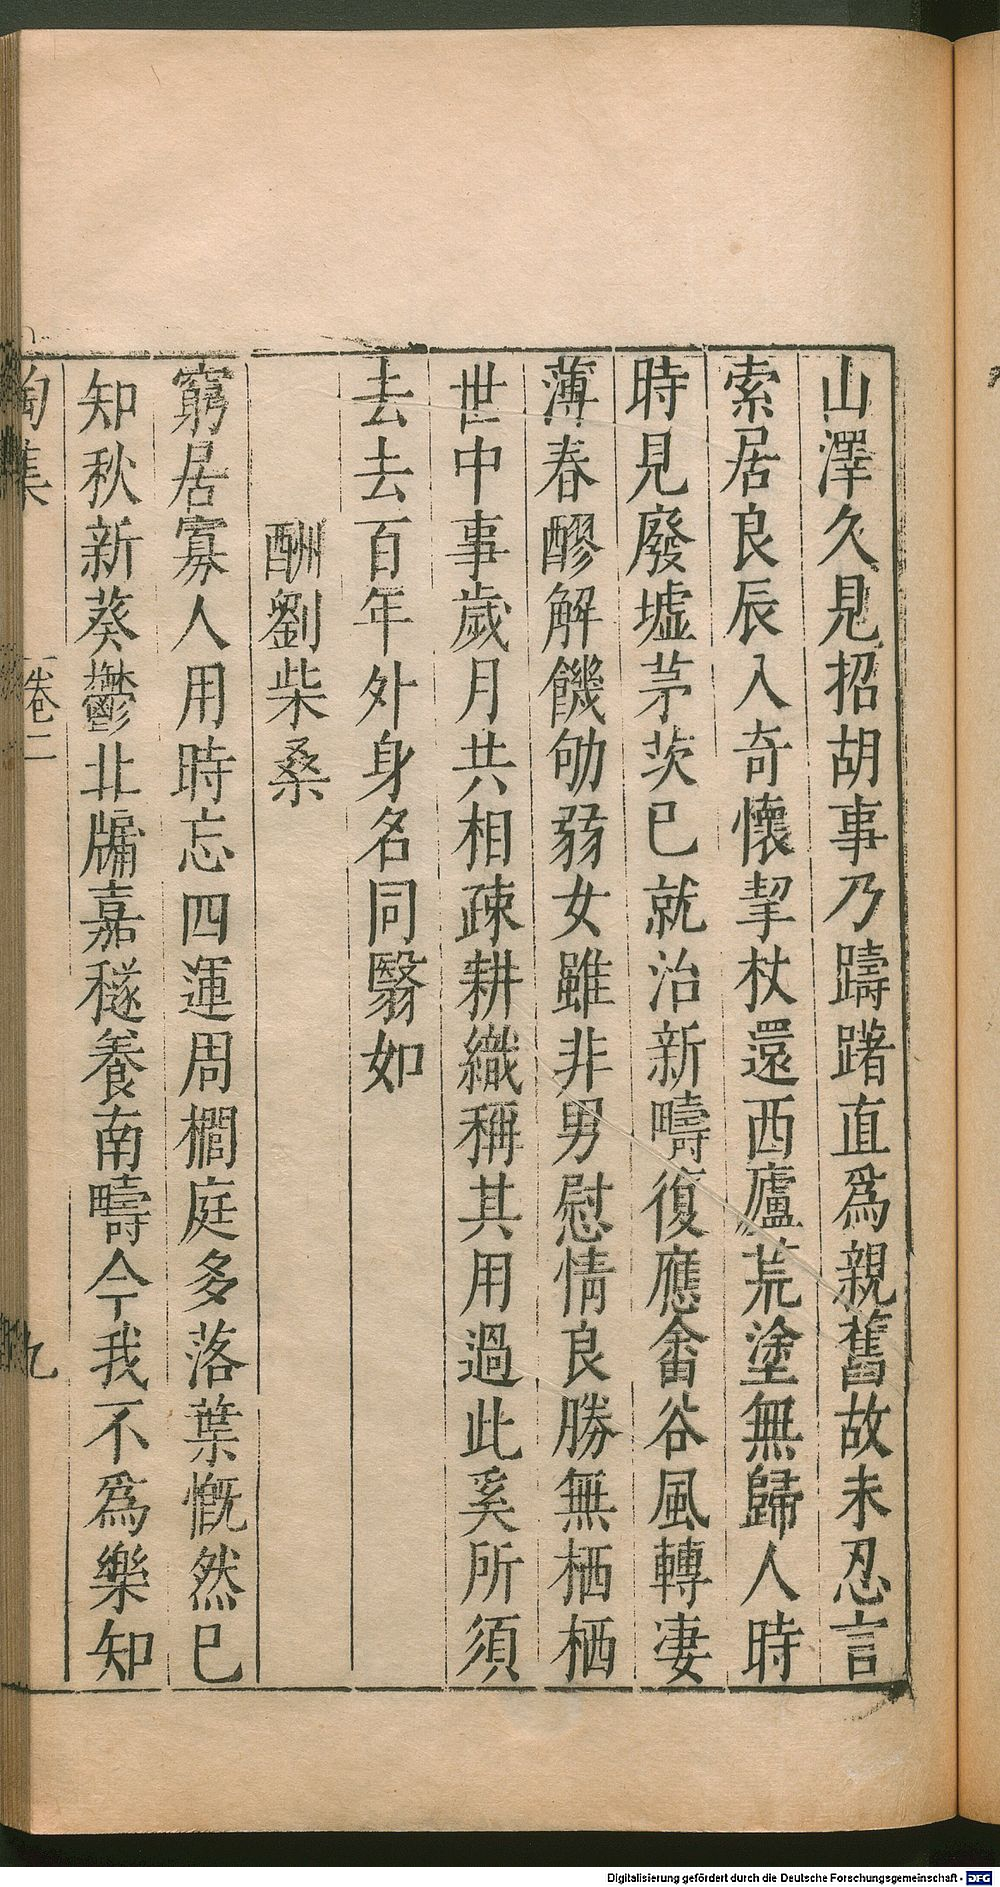 山澤久見招胡事乃躊躇直爲親舊故未忍言
索居良辰入奇懷挈杖還西廬荒塗無歸人時
時見廢墟茅茨已就治新疇復應畬谷風轉淒
薄春醪解饑劬弱女雖非男慰情良勝無栖栖
世中事歲月共相疎耕織稱其用過此奚所須
去去百年外身名同翳如
酬劉柴桑
窮居寡人用時忘四運周櫚庭多落葉慨然已
知秋新葵鬱北牖嘉穟養南疇今我不爲樂知
陶集 卷二 九
Digitalisierung gefördert durch die Deutsche Forschungsgemeinschaft - DFG